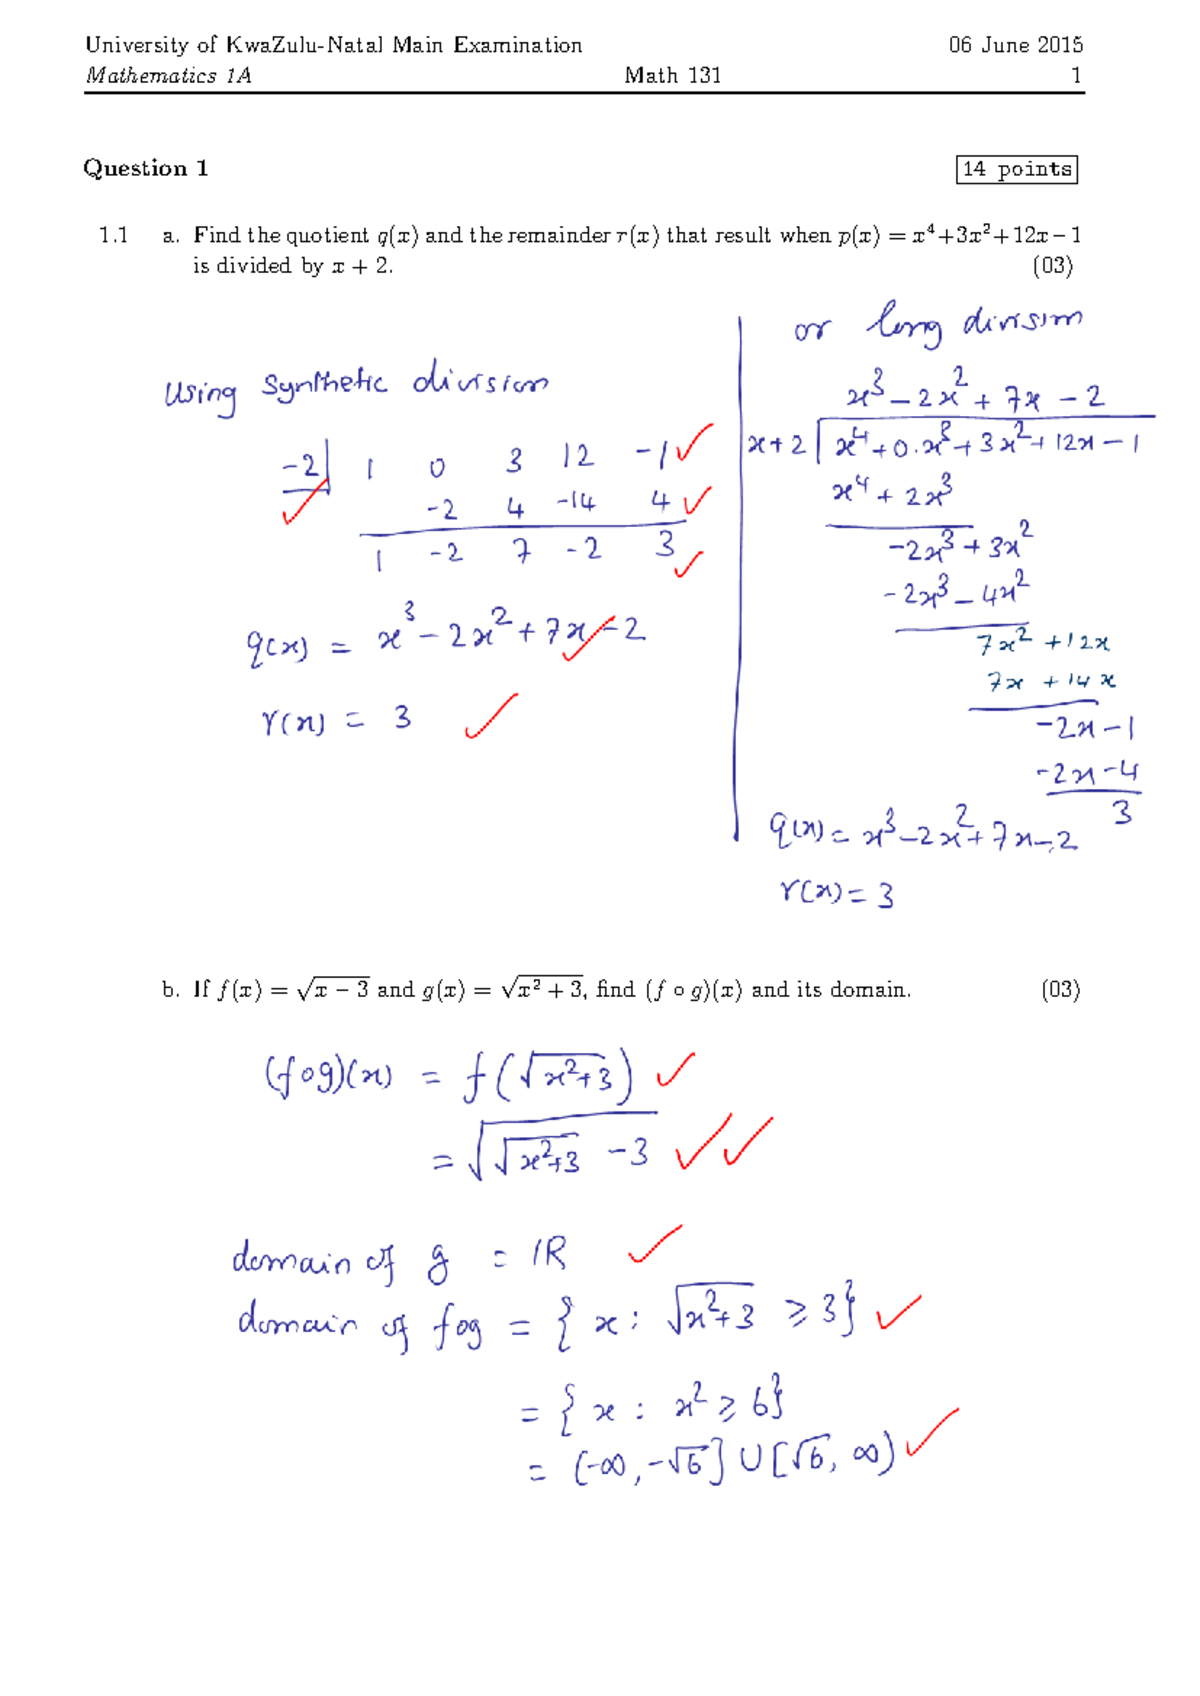 University of KwaZulu-Natal Main Examination 06 June 2015
Mathematics 1A Math 131 1
Question 1 14 points
1.1 a. Find the quotient q(x) and the remainder r(x) that result when p(x) = x⁴+3x²+12x−1
is divided by x + 2. (03)
Using Synthetic division
-2| 1 0 3 12 -1
-2 4 -14 4
1 -2 7 -2 3
q(x) = x³ - 2x² + 7x - 2
r(x) = 3
or long division
x³ - 2x² + 7x - 2
x+2 | x⁴ + 0.x³ + 3x² + 12x - 1
x⁴ + 2x³
-2x³ + 3x²
-2x³ - 4x²
7x² + 12x
7x + 14x
-2x - 1
-2x - 4
3
q(x) = x³ - 2x² + 7x - 2
r(x) = 3
b. If f(x) = √(x − 3) and g(x) = √(x² + 3), find (f ∘ g)(x) and its domain. (03)
(fog)(x) = f(√(x²+3))
= √(√(x²+3) - 3)
domain of g = ℝ
domain of fog = {x : √(x²+3) ≥ 3}
= {x : x² ≥ 6}
= (-∞, -√6] ∪ [√6, ∞)